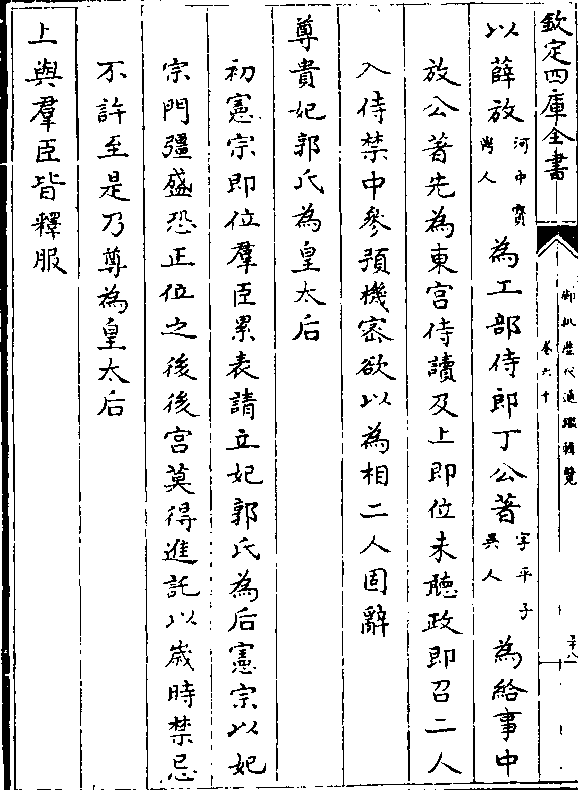 欽定四庫全書
御批歷代通鑑輯覽
卷六十
以薛放河中寶鼎人為工部侍郎丁公著字平子吳人為給事中
放公著先為東宮侍讀及上即位未聽政即召二人
入侍禁中參預機密欲以為相二人固辭
尊貴妃郭氏為皇太后
初憲宗即位羣臣累表請立妃郭氏為后憲宗以妃
宗門彊盛恐正位之後後宮莫得進託以歲時禁忌
不許至是乃尊為皇太后
上與羣臣皆釋服